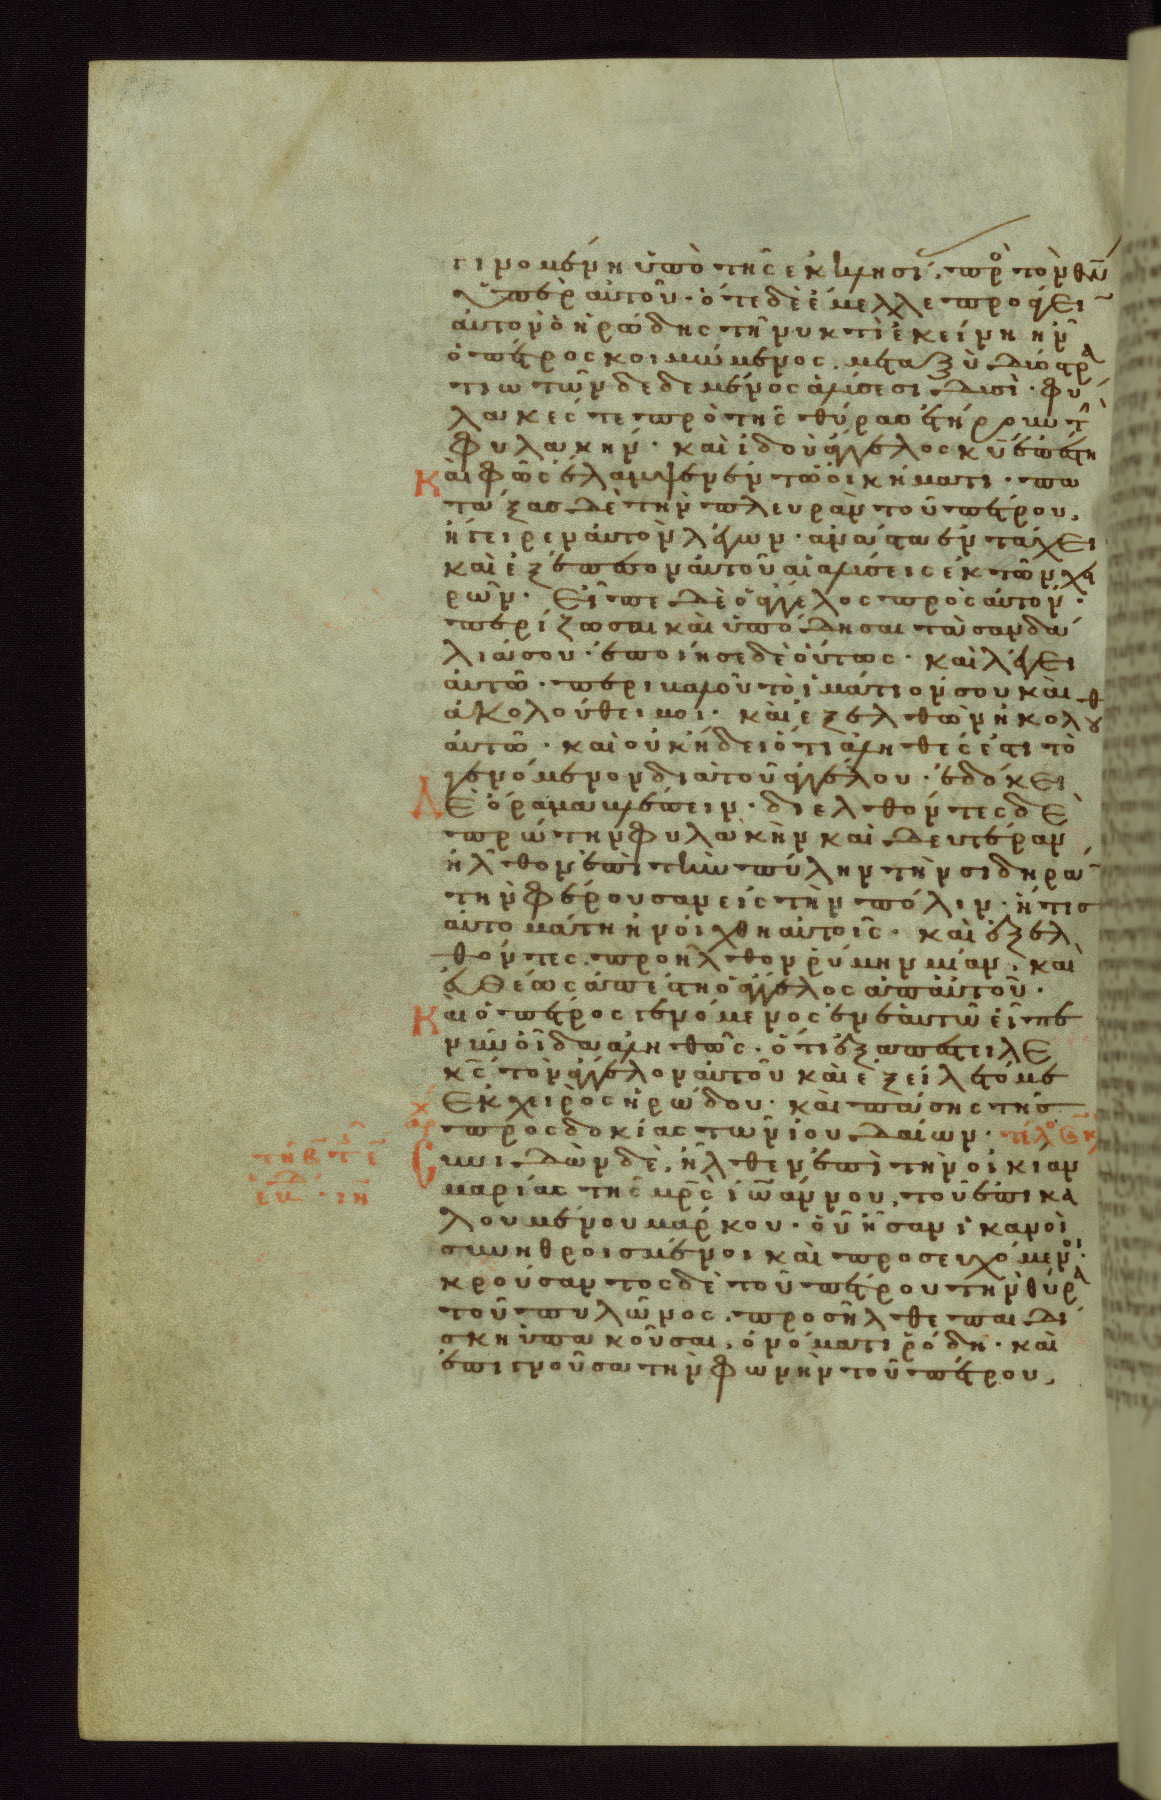 γινομένη ὑπὸ τῆς ἐκκλησί, πρὸ τὸν θν̄
ὑπὲρ αὐτοῦ· ὅτε δὲ ἔμελλε προάγει
αὐτὸν ὁ ἡρώδης τῇ νυκτὶ ἐκείνῃ ἦν
ὁ πέτρος κοιμώμενος, μεταξὺ δύο στρα
τιωτῶν δεδεμένος ἁλύσεσι δυσὶ· φύ
λακές τε πρὸ τῆς θύρας ἐτήρουν τ
φυλακήν· καὶ ἰδοὺ ἄγγελος κῡ ἐπέστη
καὶ φῶς ἔλαμψεν ἐν τῶ οἰκήματι· πα
τάξας δὲ τὴν πλευρὰν τοῦ πέτρου,
ἤγειρεν αὐτὸν λέγων· ἀνάστα ἐν τάχει
καὶ ἐξέπεσον αὐτοῦ αἱ ἁλύσεις ἐκ τῶν χει
ρῶν· εἶπε δὲ ὁ ἄγγελος πρὸς αὐτόν·
περίζωσαι καὶ ὑπόδησαι τὰ σανδά
λιά σου· ἐποίησε δὲ οὕτως· καὶ λέγει
αὐτῶ· περιβαλοῦ τὸ ἱμάτιόν σου καὶ
ἀκολούθει μοι· καὶ ἐξελθὼν ἠκολουθ
αὐτῶ· καὶ οὐκ ἤδει ὅτι ἀληθές ἐστι τὸ
γενόμενον διὰ τοῦ ἀγγέλου· ἐδόκει
δὲ ὅραμα βλέπειν· διελθόντες δὲ
πρώτην φυλακὴν καὶ δευτέραν
ἦλθον ἐπὶ τὴν πύλην τὴν σιδηρᾶ
τὴν φέρουσαν εἰς τὴν πόλιν· ἥτις
αὐτομάτη ἠνοίχθη αὐτοῖς· καὶ ἐξελ
θόντες, προῆλθον ῥύμην μίαν, καὶ
εὐθέως ἀπέστη ὁ ἄγγελος ἀπ' αὐτοῦ·
καὶ ὁ πέτρος γενόμενος ἐν ἑαυτῶ εἶπε
νῦν οἶδα ἀληθῶς· ὅτι ἐξαπέστειλε
κς̄ τὸν ἄγγελον αὐτοῦ καὶ ἐξείλετό με
ἐκ χειρὸς ἡρώδου· καὶ πάσης τῆς
προσδοκίας τῶν ἰουδαίων·
συνιδὼν δὲ, ἦλθεν ἐπὶ τὴν οἰκίαν
μαρίας τῆς μρ̄ς ἰωάννου, τοῦ ἐπικα
λουμένου μάρκου· οὗ ἦσαν ἱκανοὶ
συνηθροισμένοι καὶ προσευχόμενοι·
κρούσαντος δὲ τοῦ πέτρου τὴν θύρα
τοῦ πυλῶνος, προσῆλθε παιδί
σκη ὑπακοῦσαι, ὀνόματι ῥόδη· καὶ
ἐπιγνοῦσα τὴν φωνὴν τοῦ πέτρου,